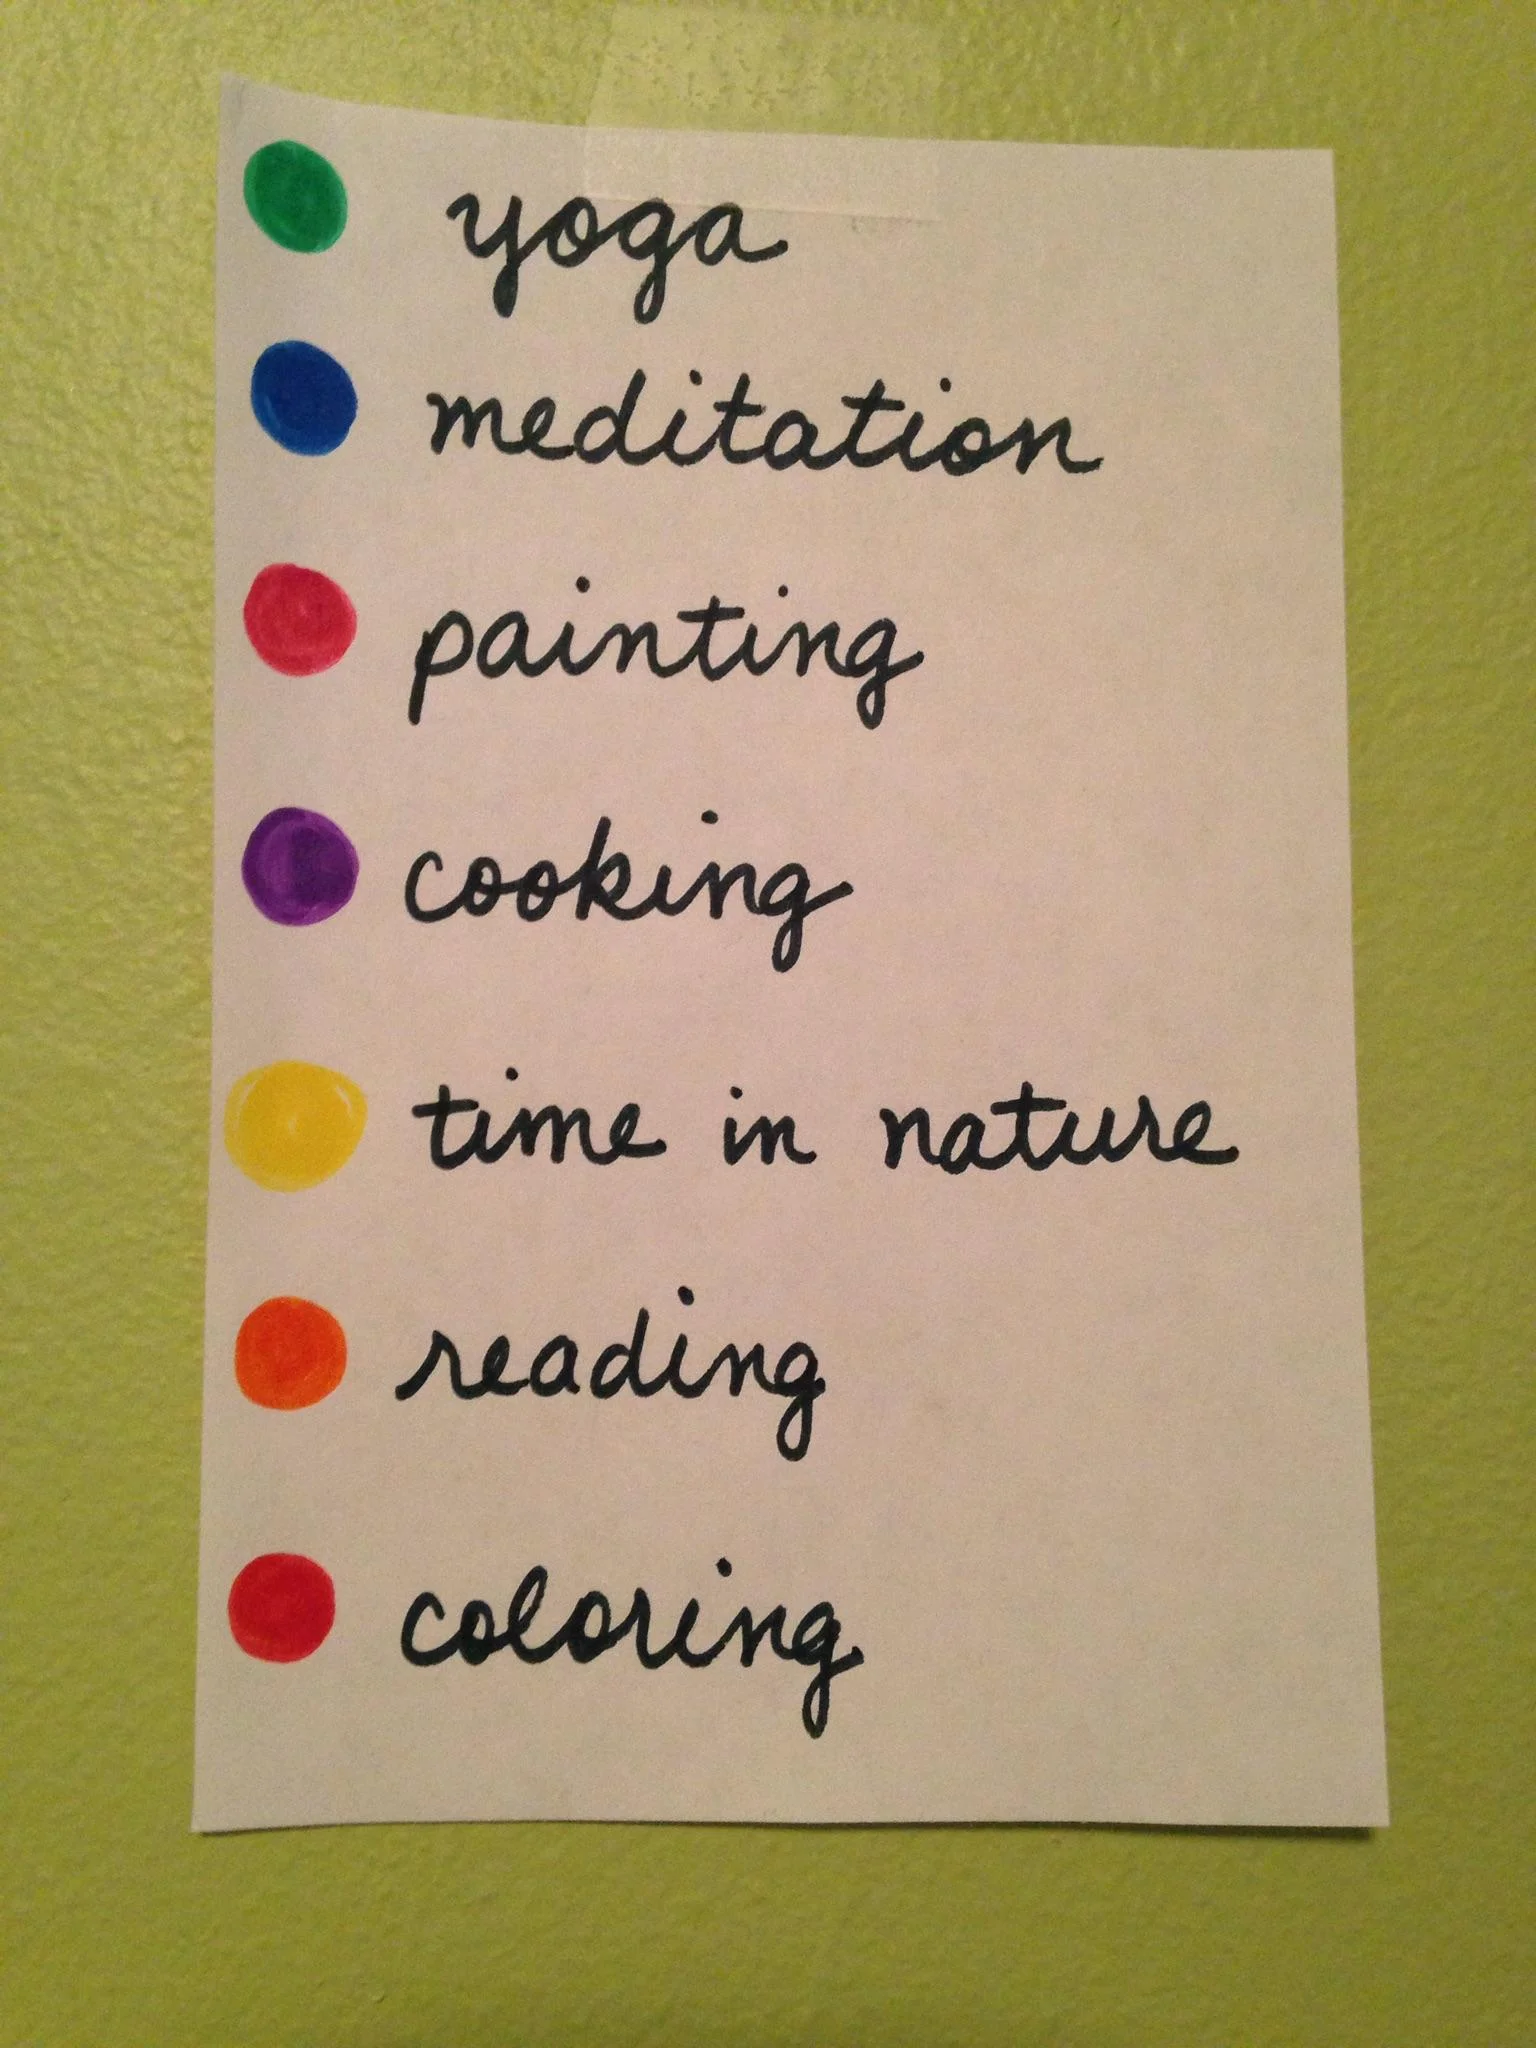 yoga
meditation
painting
cooking
time in nature
reading
coloring